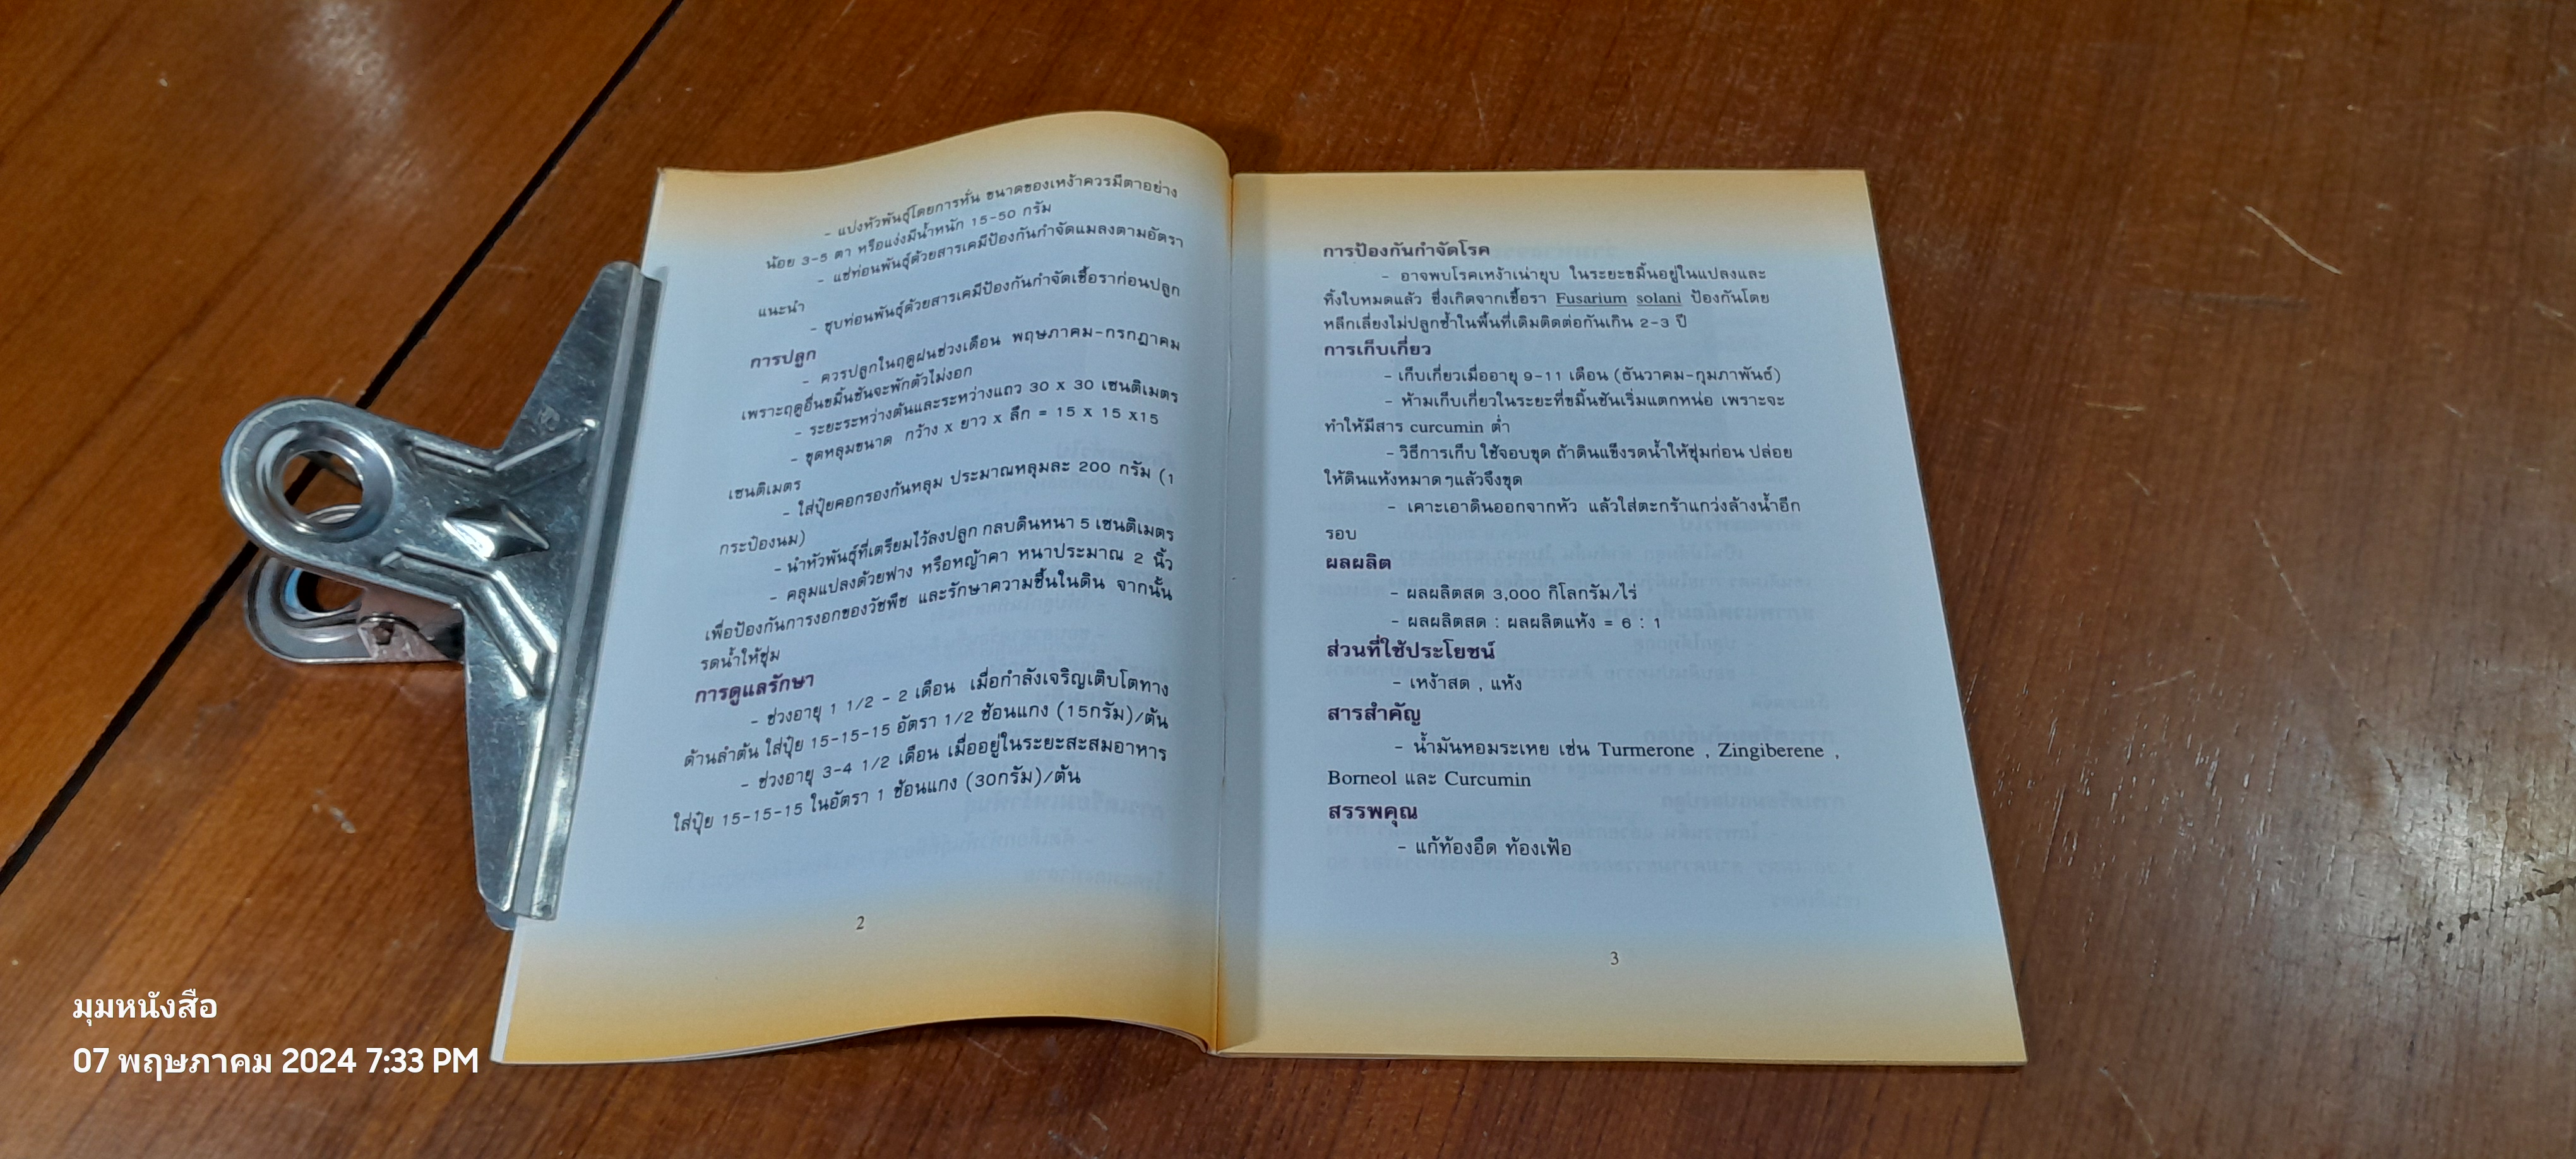 - แบ่งหัวพันธุ์โดยการหั่น ขนาดของเหง้าควรมีตาอย่าง
น้อย 3-5 ตา หรือแง่งมีน้ำหนัก 15-50 กรัม
- แช่ท่อนพันธุ์ด้วยสารเคมีป้องกันกำจัดแมลงตามอัตรา
แนะนำ
- ชุบท่อนพันธุ์ด้วยสารเคมีป้องกันกำจัดเชื้อราก่อนปลูก
การปลูก
- ควรปลูกในฤดูฝนช่วงเดือน พฤษภาคม-กรกฎาคม
เพราะฤดูอื่นขมิ้นชันจะพักตัวไม่งอก
- ระยะระหว่างต้นและระหว่างแถว 30 x 30 เซนติเมตร
- ขุดหลุมขนาด กว้าง x ยาว x ลึก = 15 x 15 x15
เซนติเมตร
- ใส่ปุ๋ยคอกรองก้นหลุม ประมาณหลุมละ 200 กรัม (1
กระป๋องนม)
- นำหัวพันธุ์ที่เตรียมไว้ลงปลูก กลบดินหนา 5 เซนติเมตร
- คลุมแปลงด้วยฟาง หรือหญ้าคา หนาประมาณ 2 นิ้ว
เพื่อป้องกันการงอกของวัชพืช และรักษาความชื้นในดิน จากนั้น
รดน้ำให้ชุ่ม
การดูแลรักษา
- ช่วงอายุ 1 1/2 - 2 เดือน เมื่อกำลังเจริญเติบโตทาง
ด้านลำต้น ใส่ปุ๋ย 15-15-15 อัตรา 1/2 ช้อนแกง (15กรัม)/ต้น
- ช่วงอายุ 3-4 1/2 เดือน เมื่ออยู่ในระยะสะสมอาหาร
ใส่ปุ๋ย 15-15-15 ในอัตรา 1 ช้อนแกง (30กรัม)/ต้น
2
การป้องกันกำจัดโรค
- อาจพบโรคเหง้าเน่ายุบ ในระยะขมิ้นอยู่ในแปลงและ
ทิ้งใบหมดแล้ว ซึ่งเกิดจากเชื้อรา Fusarium solani ป้องกันโดย
หลีกเลี่ยงไม่ปลูกซ้ำในพื้นที่เดิมติดต่อกันเกิน 2-3 ปี
การเก็บเกี่ยว
- เก็บเกี่ยวเมื่ออายุ 9-11 เดือน (ธันวาคม-กุมภาพันธ์)
- ห้ามเก็บเกี่ยวในระยะที่ขมิ้นชันเริ่มแตกหน่อ เพราะจะ
ทำให้มีสาร curcumin ต่ำ
- วิธีการเก็บ ใช้จอบขุด ถ้าดินแข็งรดน้ำให้ชุ่มก่อน ปล่อย
ให้ดินแห้งหมาดๆแล้วจึงขุด
- เคาะเอาดินออกจากหัว แล้วใส่ตะกร้าแกว่งล้างน้ำอีก
รอบ
ผลผลิต
- ผลผลิตสด 3,000 กิโลกรัม/ไร่
- ผลผลิตสด : ผลผลิตแห้ง = 6 : 1
ส่วนที่ใช้ประโยชน์
- เหง้าสด , แห้ง
สารสำคัญ
- น้ำมันหอมระเหย เช่น Turmerone , Zingiberene ,
Borneol และ Curcumin
สรรพคุณ
- แก้ท้องอืด ท้องเฟ้อ
3
มุมหนังสือ
07 พฤษภาคม 2024 7:33 PM